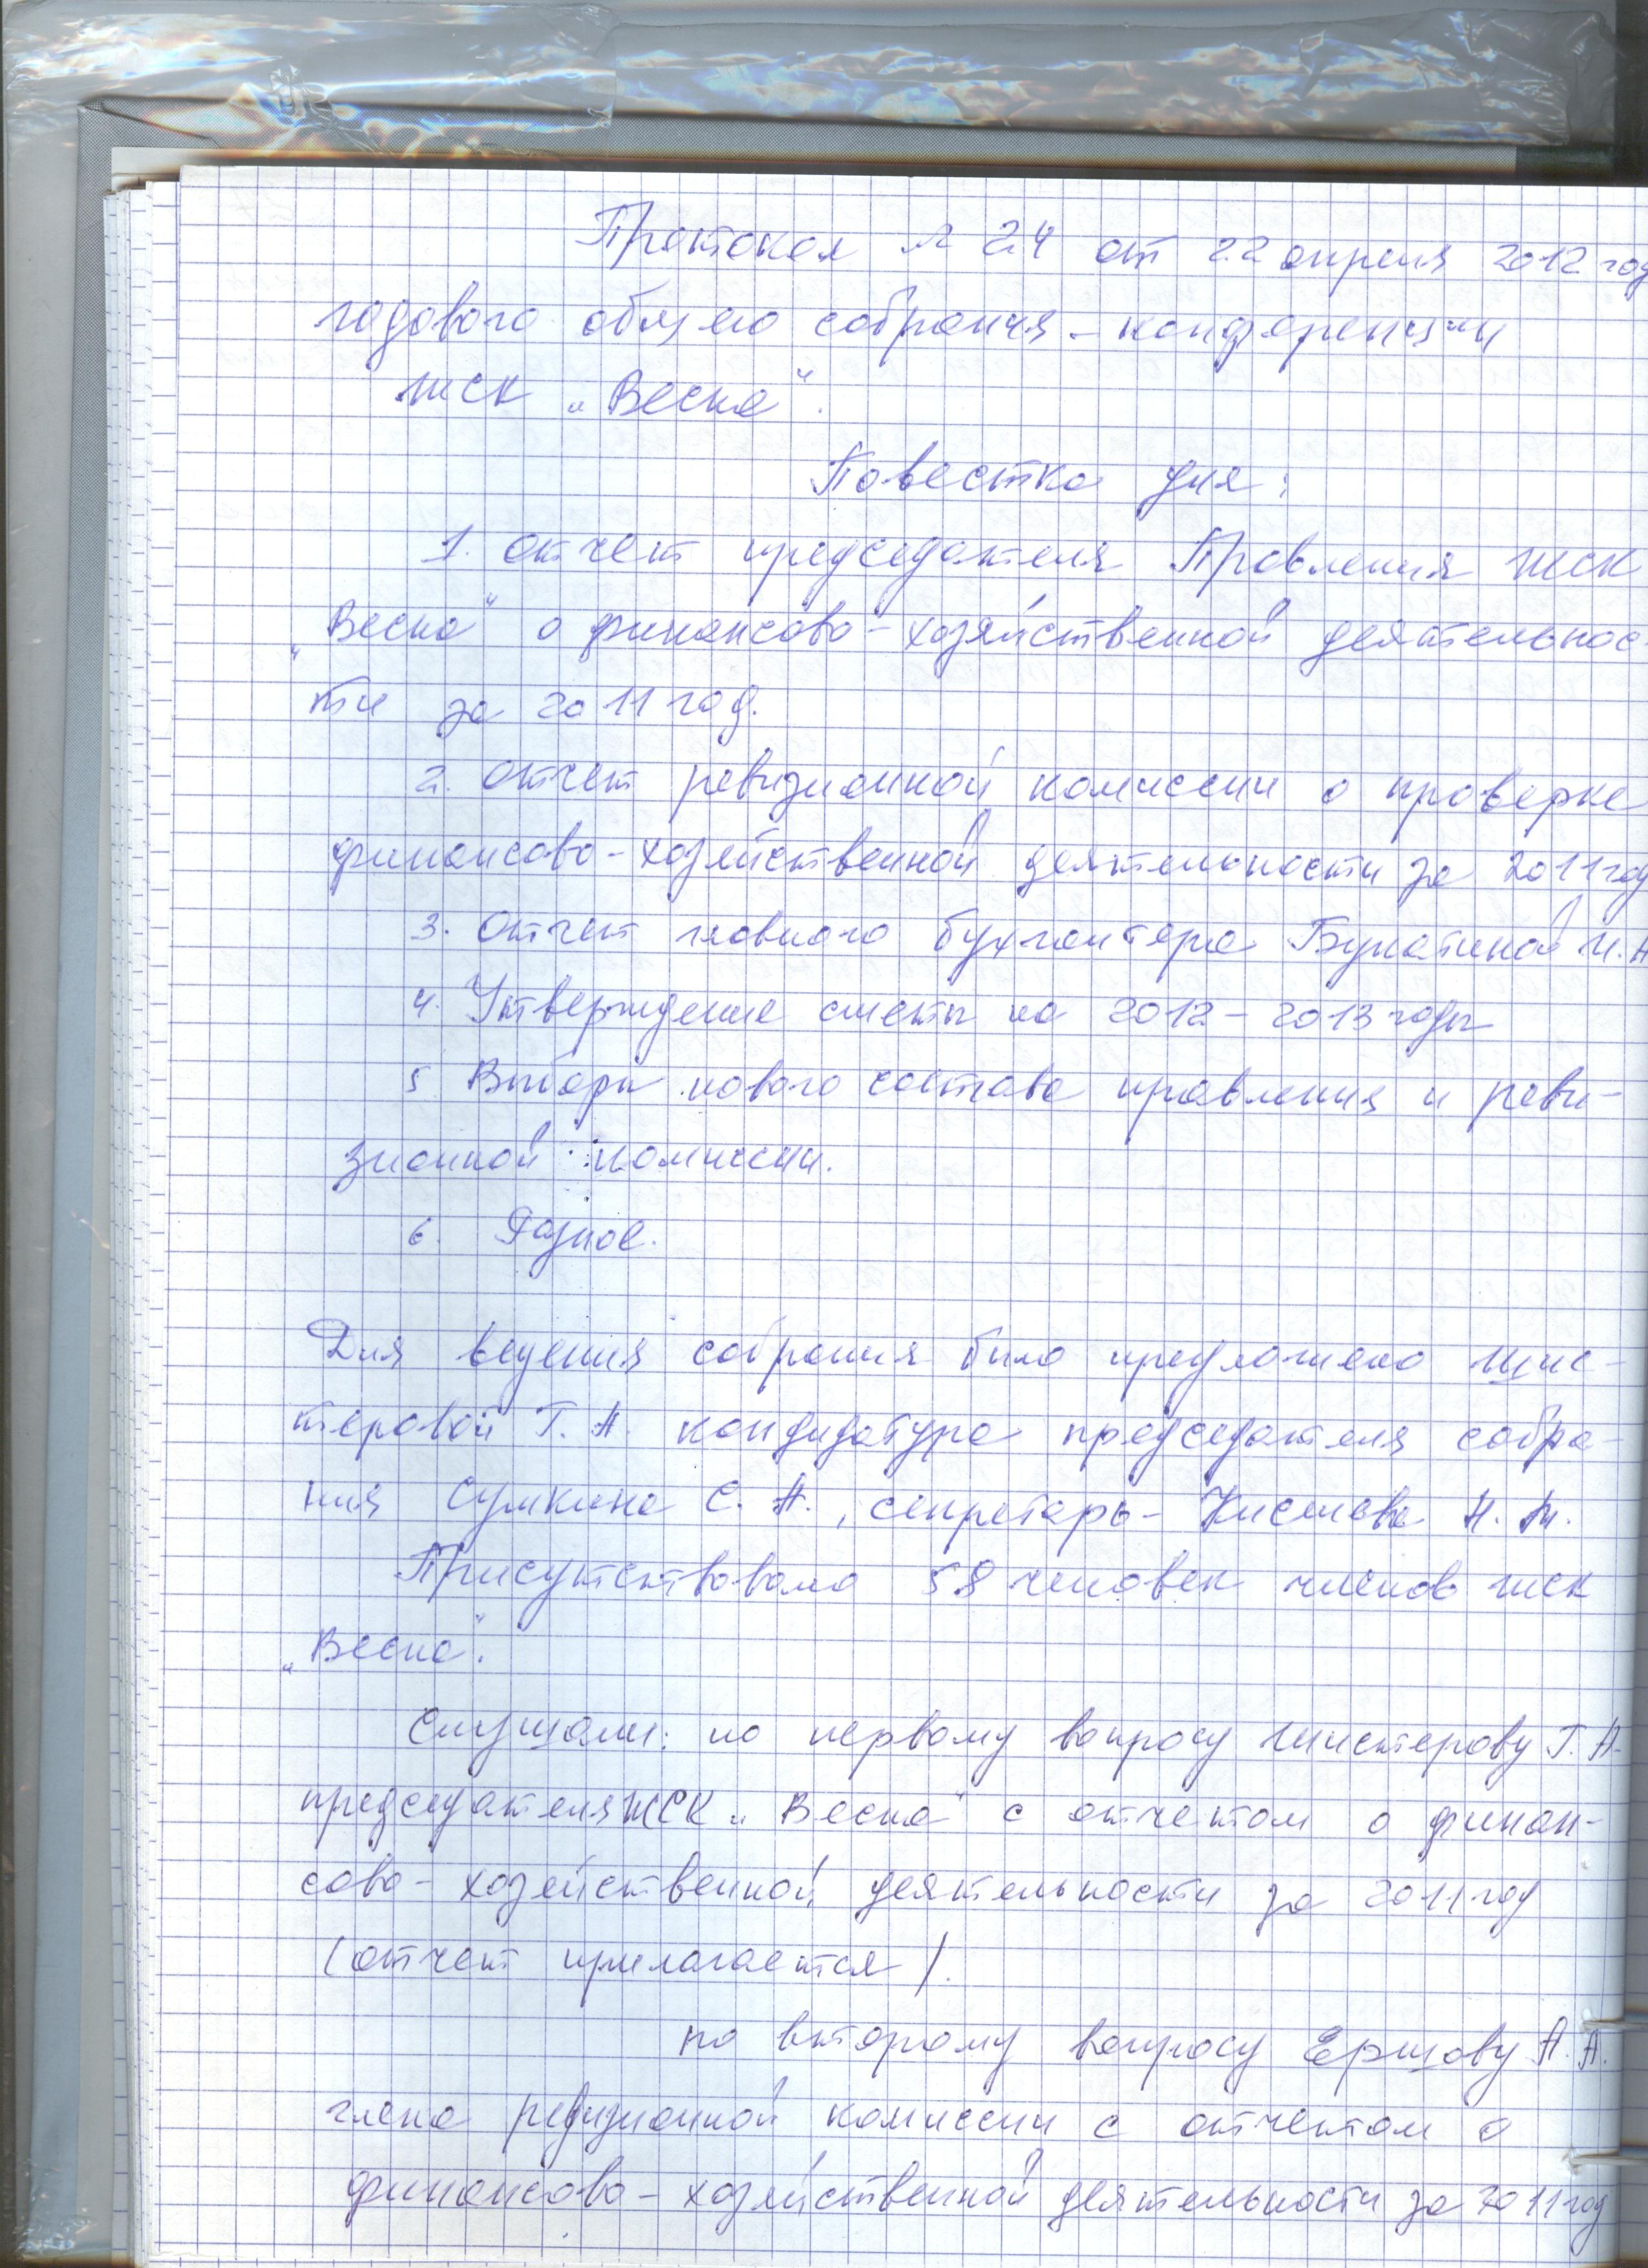 Протокол № 24 от 22 апреля 2012 год
годового общего собрания - конференции
ЖСК „Весна".
Повестка дня:
1. Отчет председателя Правления ЖСК
„Весна" о финансово-хозяйственной деятельнос-
ти за 2011 год.
2. Отчет ревизионной комиссии о проверке
финансово-хозяйственной деятельности за 2011 год
3. Отчет главного бухгалтера И.А
4. Утверждение сметы на 2012 - 2013 годы
5. Выборы нового состава правления и реви-
зионной комиссии.
6. Разное.
Для ведения собрания было предложено Шис-
теровой Г. А. кандидатура председателя собра-
ния Сумкина С. А., секретарь - Киселева Н. М.
Присутствовало 58 человек членов ЖСК
„Весна".
Слушали: по первому вопросу Шистерову Г. А.
председателя ЖСК „Весна" с отчетом о финан-
сово-хозяйственной деятельности за 2011 год
(отчет прилагается).
по второму вопросу Ершову А. А.
члена ревизионной комиссии с отчетом о
финансово-хозяйственной деятельности за 2011 год